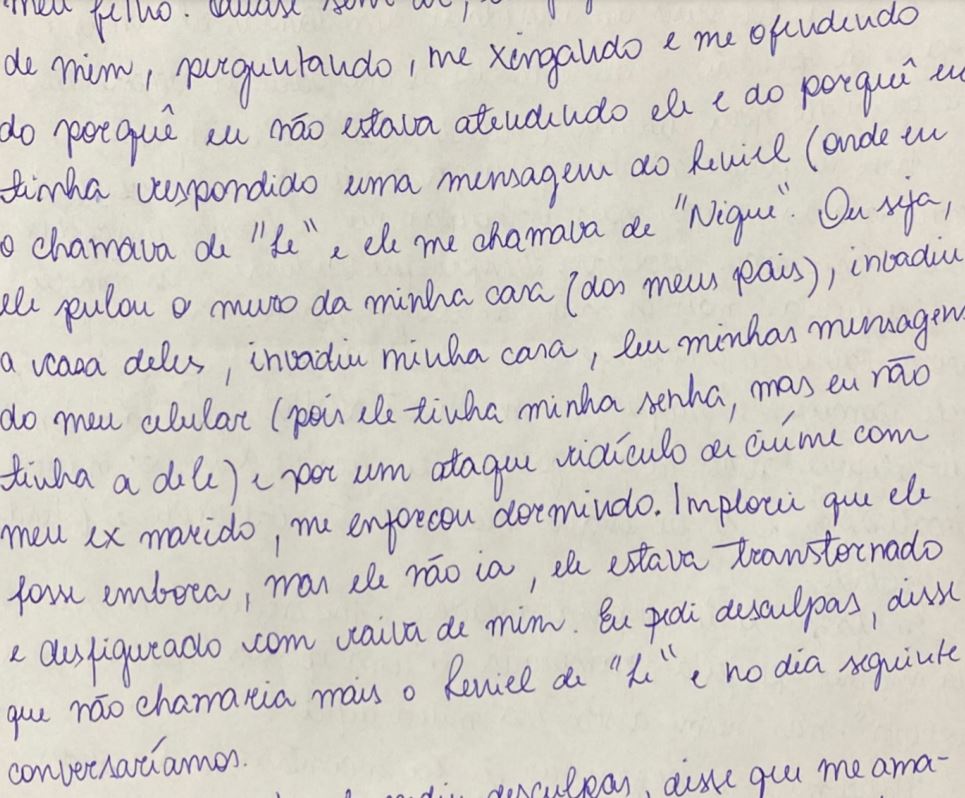 meu filho. Quase sem ar,
de mim, perguntando, me xingando e me ofendendo
do porquê eu não estava atendendo ele e do porquê eu
tinha respondido uma mensagem do Leniel (onde eu
o chamava de "Le" e ele me chamava de "Nique". Ou seja,
ele pulou o muro da minha casa (dos meus pais), invadiu
a casa deles, invadiu minha casa, leu minhas mensagens
do meu celular (pois ele tinha minha senha, mas eu não
tinha a dele) e por um ataque ridículo de ciúme com
meu ex marido, me enforcou dormindo. Implorei que ele
fosse embora, mas ele não ia, ele estava transtornado
e desfigurado com raiva de mim. Eu pedi desculpas, disse
que não chamaria mais o Leniel de "Le" e no dia seguinte
conversaríamos.
desculpas, disse que me ama-